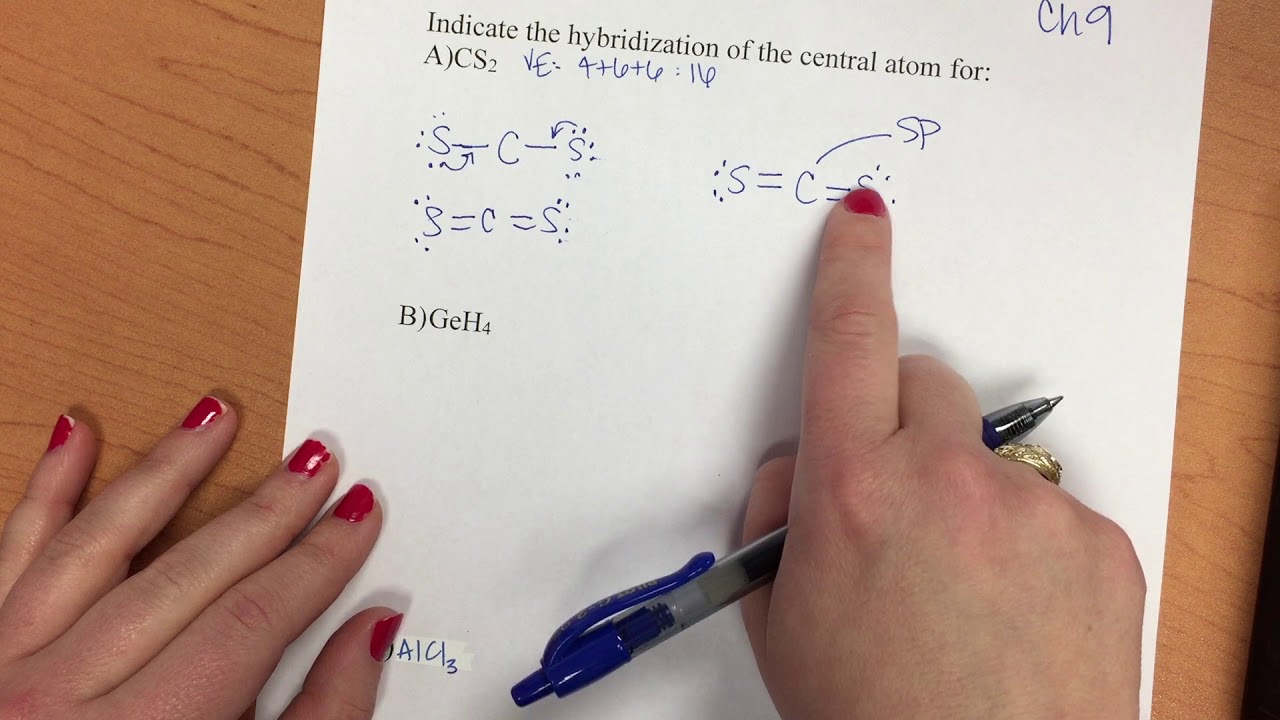 Ch 9
Indicate the hybridization of the central atom for:
A)CS₂ VE: 4+6+6 : 16
S — C — S
SP
S = C = S
S = C = S
B)GeH₄
)AlCl₃